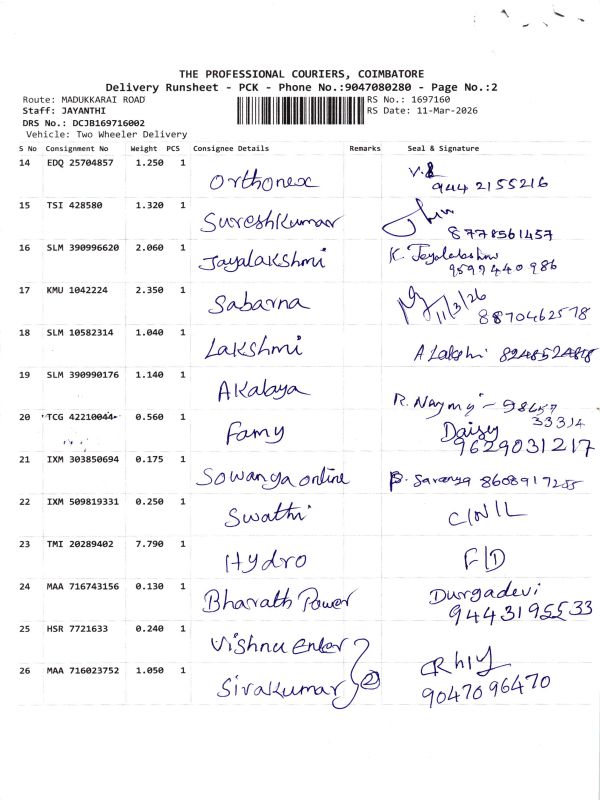 THE PROFESSIONAL COURIERS, COIMBATORE
Delivery Runsheet - PCK - Phone No.:9047080280 - Page No.:2
Route: MADUKKARAI ROAD RS No.: 1697160
Staff: JAYANTHI RS Date: 11-Mar-2026
DRS No.: DCJB169716002
Vehicle: Two Wheeler Delivery
S No Consignment No Weight PCS Consignee Details Remarks Seal & Signature
14 EDQ 25704857 1.250 1 Orthonex
9442155216
15 TSI 428580 1.320 1 SureshKumar
8778561457
16 SLM 390996620 2.060 1 Jayalakshmi K. Jayalakshmi
9597440986
17 KMU 1042224 2.350 1 Sabarna 11/3/26
8870462578
18 SLM 10582314 1.040 1 Lakshmi A Lakshmi
19 SLM 390990176 1.140 1 AKalaya
20 TCG 42210044 0.560 1 Famy Daisy
9629031217
21 IXM 303850694 0.175 1 Sowanya online Saranya 8608917255
22 IXM 509819331 0.250 1 Swathi
23 TMI 20289402 7.790 1 Hydro
24 MAA 716743156 0.130 1 Bharath Power Durgadevi
9443195533
25 HSR 7721633 0.240 1 Vishnu Enter
26 MAA 716023752 1.050 1 Sivakumar 2
9047096470